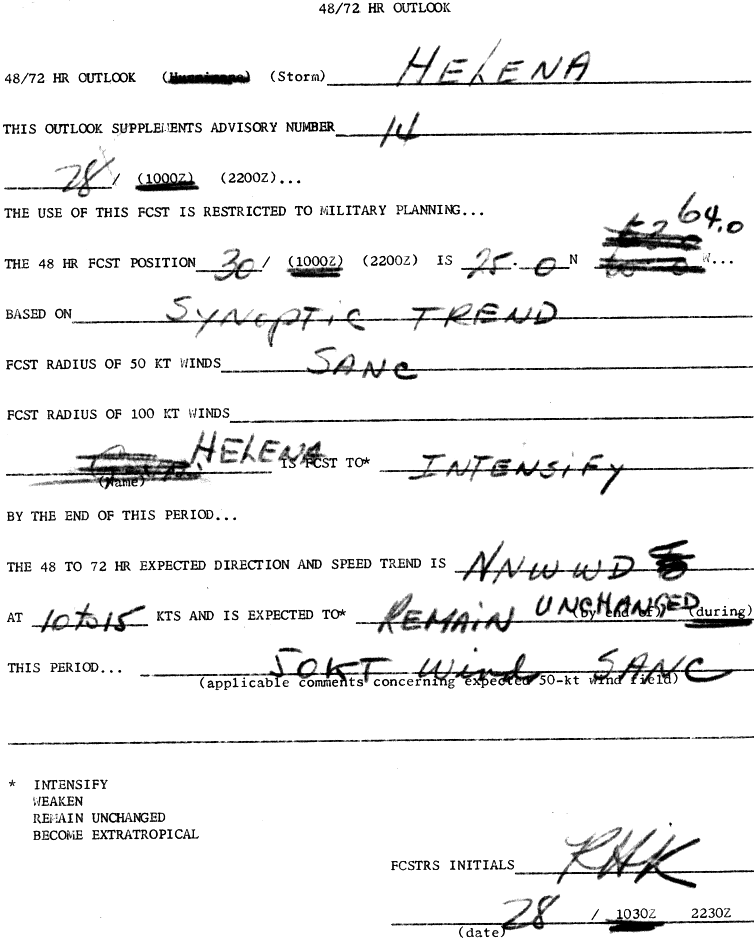 48/72 HR OUTLOOK
48/72 HR OUTLOOK (Hurricane) (Storm) HELENA
THIS OUTLOOK SUPPLEMENTS ADVISORY NUMBER 14
28 / (1000Z) (2200Z)...
THE USE OF THIS FCST IS RESTRICTED TO MILITARY PLANNING...
THE 48 HR FCST POSITION 30 / (1000Z) (2200Z) IS 25.0 N 64.0 W...
BASED ON SYNOPTIC TREND
FCST RADIUS OF 50 KT WINDS SANC
FCST RADIUS OF 100 KT WINDS
HELENA IS FCST TO* INTENSIFY
(Name)
BY THE END OF THIS PERIOD...
THE 48 TO 72 HR EXPECTED DIRECTION AND SPEED TREND IS NNWWD
AT 10 to 15 KTS AND IS EXPECTED TO* REMAIN UNCHANGED (by end of) (during)
THIS PERIOD... 50KT Wind SANC
(applicable comments concerning expected 50-kt wind field)
* INTENSIFY
WEAKEN
REMAIN UNCHANGED
BECOME EXTRATROPICAL
FCSTRS INITIALS RHK
28 / 1030Z 2230Z
(date)